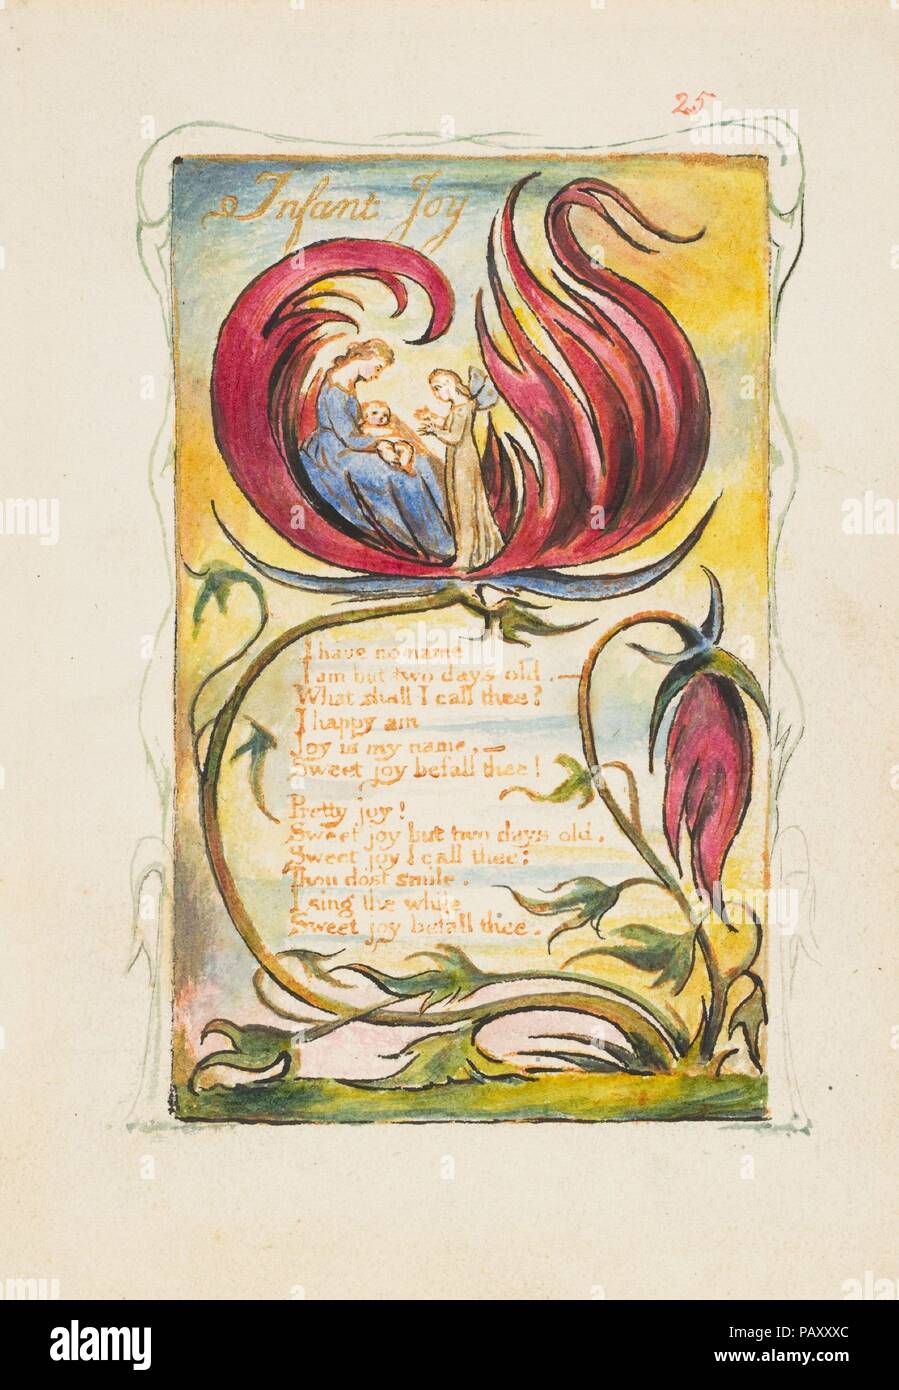 25
Infant Joy
I have no name
I am but two days old. —
What shall I call thee?
I happy am
Joy is my name, —
Sweet joy befall thee!
Pretty joy!
Sweet joy but two days old.
Sweet joy I call thee;
Thou dost smile.
I sing the while
Sweet joy befall thee.
alamy
alamy stock photo
PAXXXC
www.alamy.com